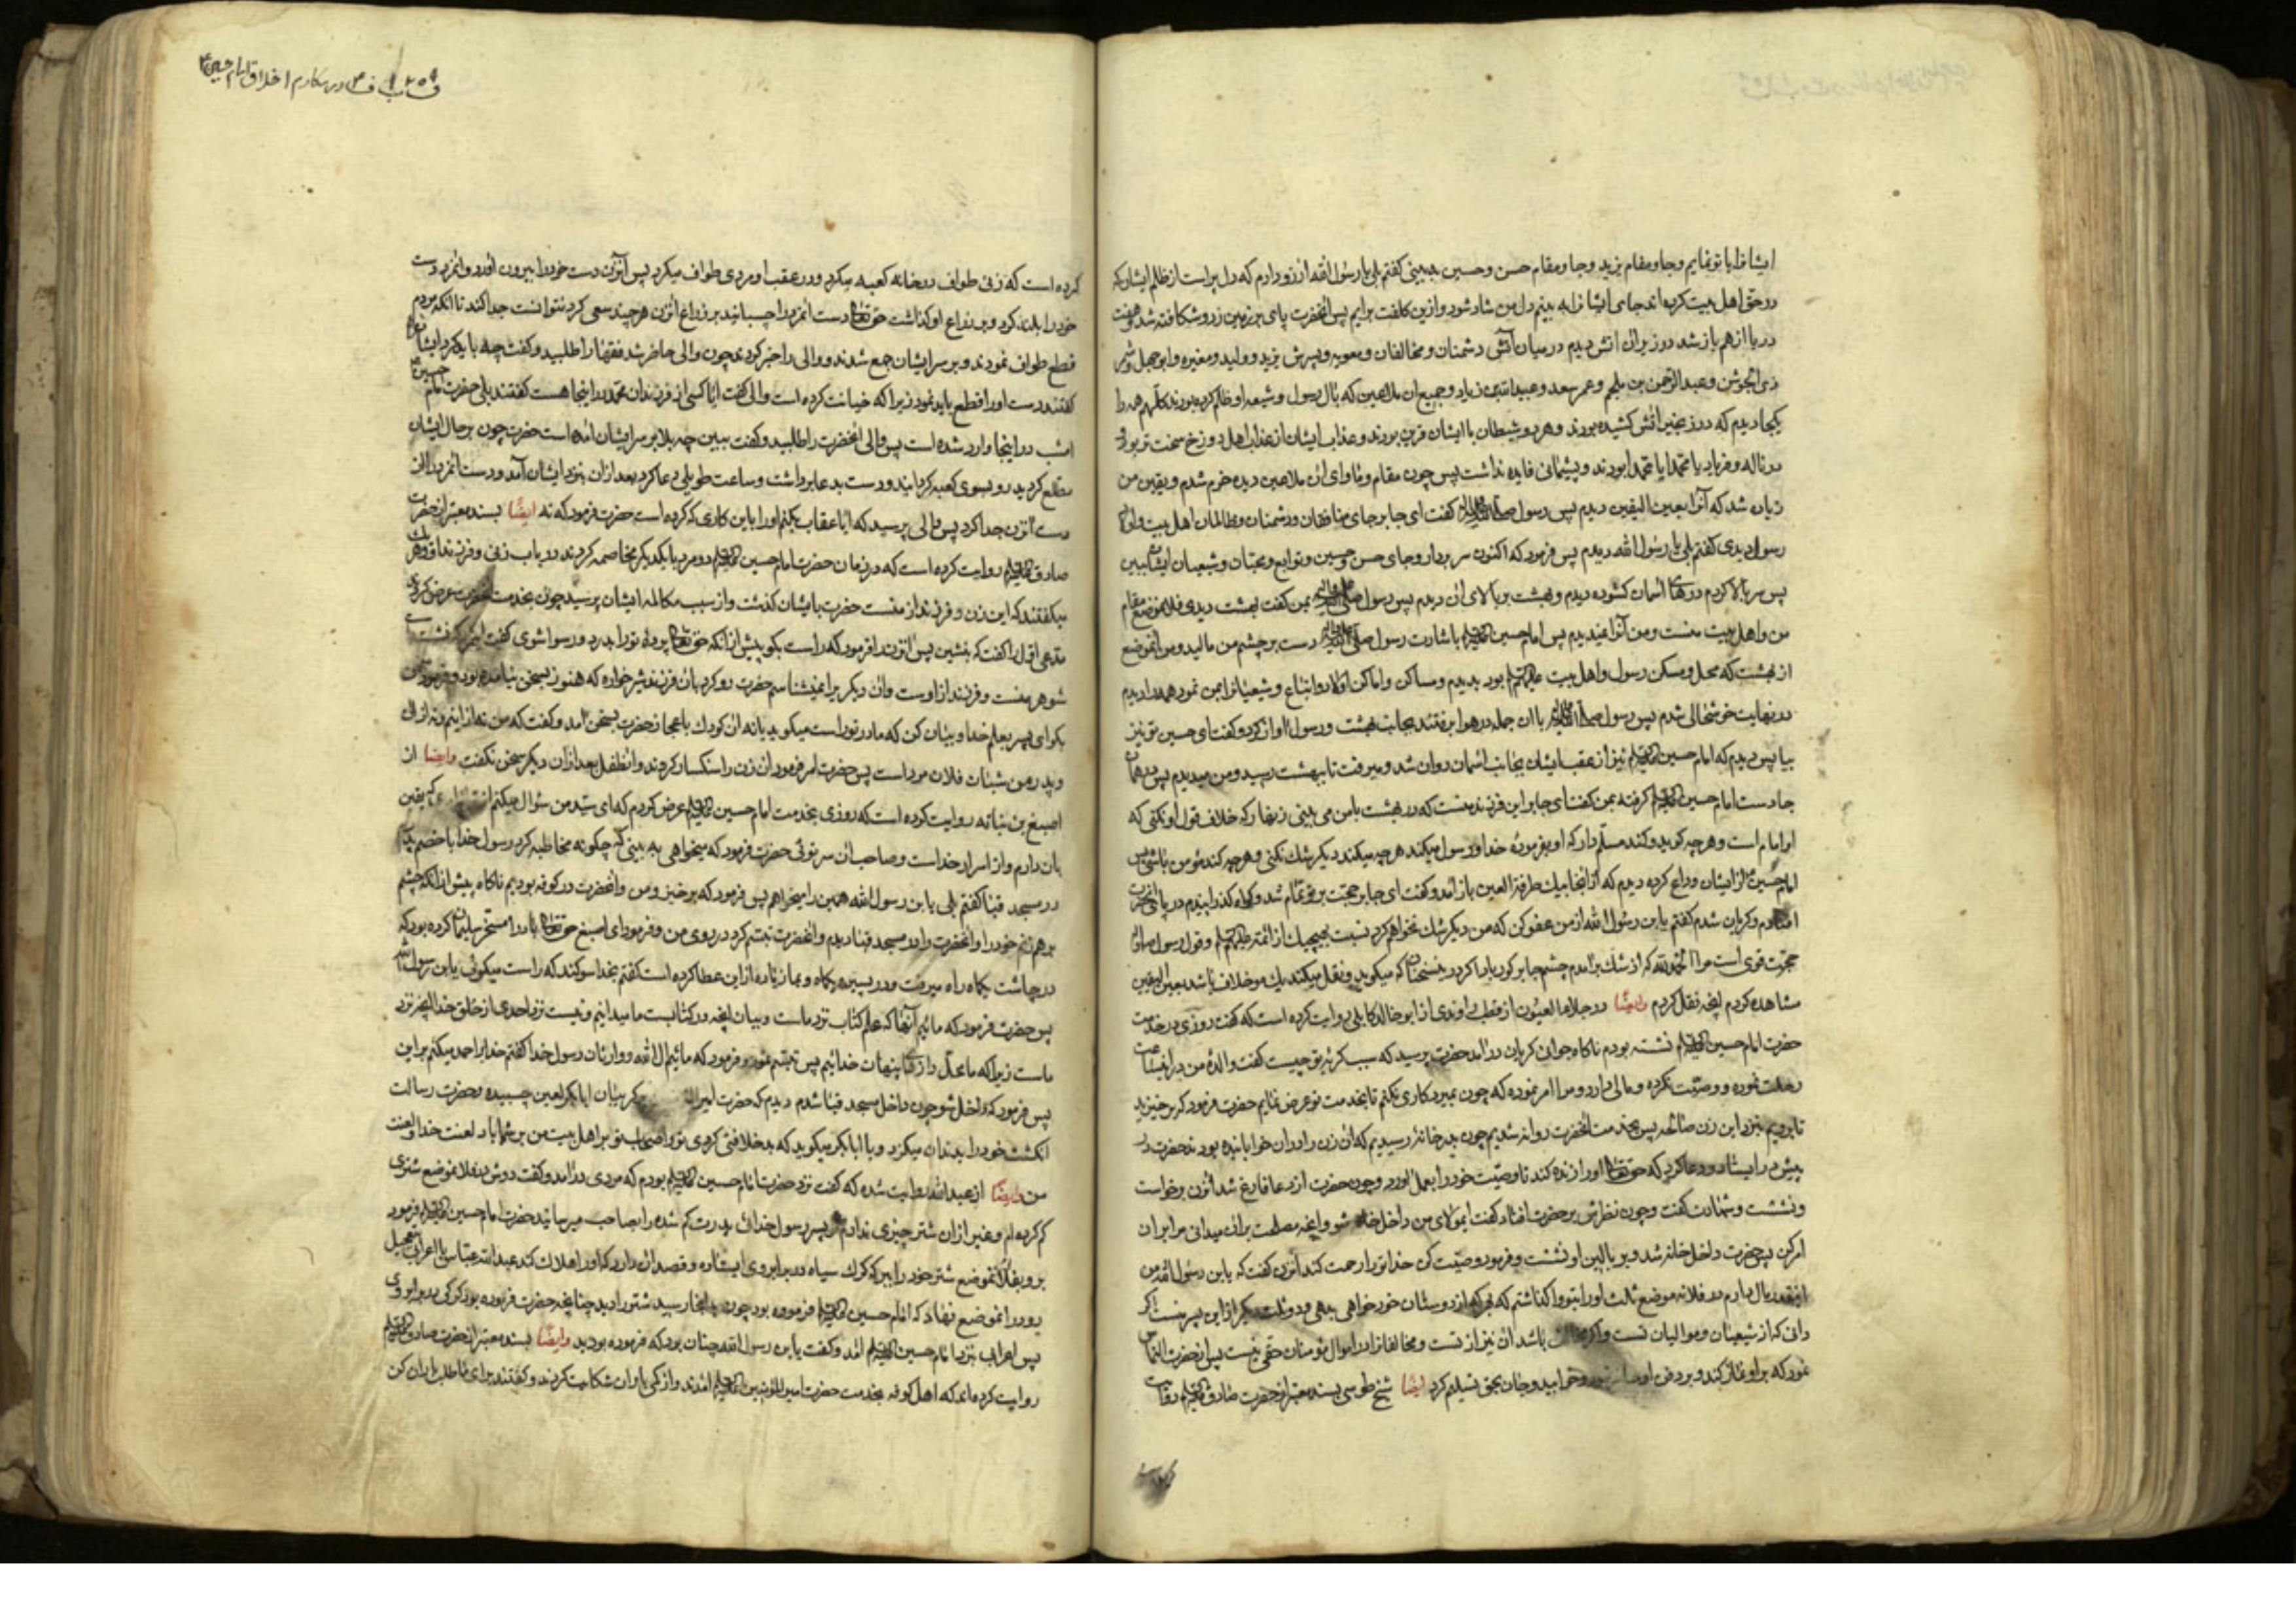 ایشانرا با تو نمایم وجا ومقام یزید وجا ومقام حسن وحسین ببینی کفتم بلی یا رسول الله ارزو دارم که دل پر است از ظلم ایشان که
در حق اهل بیت کرده اند جای ایشانرا به بینم دل من شاد شود وازین کلفت برایم پس انحضرت پای بر زمین زد وشکافته شد وهفت
دریا از هم باز شد ودر زیر ان اتش دیدم در میان آتش دشمنان ومخالفان ومعویه وپسرش یزید وولید ومغیره وابوجهل وشمر
ذی الجوشن وعبد الرحمن بن ملجم وعمر سعد وعبید الله بن زیاد وجمیع ان ملاعین که بال رسول وشیعه او ظلم کرده بودند کلهم همه را
یکجا دیدم که در زنجیر اتش کشیده بودند وهر دو شیطان با ایشان قرین بودند وعذاب ایشان از عذاب اهل دوزخ سخت تر بود و
در ناله وفریاد یا محمدا یا محمدا بودند وپشیمانی فایده نداشت پس چون مقام وماوای ان ملاعین دیدم خرم شدم ویقین من
زیاده شد که آنرا بعین الیقین دیدم پس رسول صلی الله علیه واله کفت ای جابر جای منافقان ودشمنان وظالمان اهل بیت واولاد
رسول دیدی کفتم بلی یا رسول الله دیدم پس فرمود که اکنون سر بردار وجای حسن وحسین وتوابع ومحبان وشیعیان ایشان ببین
پس سر بالا کردم درهای اسمان کشوده دیدم وبهشت بر بالای ان دیدم پس رسول صلی الله علیه واله بمن کفت بهشت دیدی فلانموضع مقام
من واهل بیت منست ومن آنرا نمیدیدم پس امام حسین علیه السلام باشارت رسول صلی الله علیه واله دست بر چشم من مالید ومن انموضع
از بهشت که محل ومسکن رسول واهل بیت علیهم السلام بود بدیدم ومساکن واماکن اولاد واتباع وشیعیانرا بمن نمود همه را دیدم
در نهایت خوشحالی شدم پس رسول صلی الله علیه واله با ان جمله در هوا برفتند بجانب بهشت ورسول اواز کرد وکفت ای حسین تو نیز
بیا پس دیدم که امام حسین علیه السلام نیز از عقب ایشان بجانب اسمان روان شد ومیرفت تا ببهشت رسید ومن میدیدم پس همان
جا دست امام حسین علیه السلام کرفته بمن کفت ای جابر این فرزند منست که در بهشت با من می بینی زنهار که خلاف قول او نکنی که
او امام است وهر چه کوید وکند مسلم دار که او بفرموده خدا ورسول میکند هر چه میکند دیکر شک نکنی وهر چه کند مؤمن باشی پس
امام حسین از ایشان وداع کرده دیدم که از انجا بیک طرفة العین باز آمد وکفت ای جابر حجت بر تو تمام شد وکواه کذرانیدم در پای انحضرت
افتادم وکریان شدم کفتم یا بن رسول الله از من عفو کن که من دیکر شک نخواهم کرد نسبت بهیچیک از ائمه علیهم السلام وقول رسول
حجت قوی است مرا الحمد لله که از شک برآمدم چشم جابر کور بادا کر در سخنان که میکوید ونقل میکند یک مو خلاف باشد بعین الیقین
مشاهده کردم انچه نقل کردم وایضا در جلاء العیون از قطب راوندی از ابو خالد کابلی روایت کرده است که کفت روزی در خدمت
حضرت امام حسین علیه السلام نشسته بودم ناکاه جوانی کریان درآمد حضرت پرسید که سبب کریه تو چیست کفت والده من در اینساعت
رحلت نموده ووصیت نکرده ومالی دارد ومرا امر نموده که چون بمیرد کاری نکنم تا بخدمت تو عرض نمایم حضرت فرمود که برخیزید
تا برویم بنزد این زن صالحه پس بخدمت انحضرت روانه شدیم چون بدر خانه رسیدیم که ان زن را در ان خوابانیده بودند حضرت در
پیش در ایستاد ودعا کرد که حق تعالی او را زنده کند تا وصیت خود را بعمل اورد وچون حضرت از دعا فارغ شد انزن برخواست
ونشست وشهادت کفت وچون نظرش بر حضرت افتاد کفت ایمولای من داخل خانه شو وانچه مصلحت برای من میدانی مرا بر ان
امر کن پس حضرت داخل خانه شد وبر بالین او نشست وفرمود وصیت کن خدا تو را رحمت کند انزن کفت که یا بن رسول الله من
اینقدر مال دارم در فلانه موضع ثلث او را بتو واکذاشتم که بهر که از دوستان خود خواهی بدهی ودو ثلث دیکر از این پسر منست اکر
دانی که از شیعیان وموالیان تست واکر مخالف باشد ان نیز از تست ومخالفانرا در اموال مؤمنان حقی نیست پس از حضرت التماس
نمود که بر او نماز کند وبر دفن او حاضر شود وخوابید وجان بحق تسلیم کرد ایضا شیخ طوسی بسند معتبر از حضرت صادق علیه السلام روایت
ق باب ف در مکارم اخلاق امام حسین ع
کرده است که زنی طواف در خانه کعبه میکرد ودر عقب او مردی طواف میکرد پس آنزن دست خود را بیرون اورد وانمرد دست
خود را بلند کرد وبر ذراع او کذاشت حق تعالی دست انمرد را چسبانید بر ذراع انزن هر چند سعی کرد نتوانست جدا کند تا انکه مردم
قطع طواف نمودند وبر سر ایشان جمع شدند ووالی را خبر کردند چون والی حاضر شد فقها را طلبید وکفت چه باید کرد ایشان
کفتند دست او را قطع باید نمود زیرا که خیانت کرده است والی کفت ایا کسی از فرزندان محمد در اینجا هست کفتند بلی حضرت امام حسین ع
امشب در اینجا وارد شده است پس والی انحضرت را طلبید وکفت ببین چه بلا بر سر ایشان امده است حضرت چون بر حال ایشان
مطلع کردید رو بسوی کعبه کردانید ودست بدعا برداشت وساعت طویلی دعا کرد بعد از ان بنزد ایشان آمد ودست انمرد را از
دست انزن جدا کرد پس والی پرسید که ایا عقاب بکنم او را باین کاری که کرده است حضرت فرمود که نه ایضا بسند معتبر از حضرت
صادق علیه السلام روایت کرده است که در زمان حضرت امام حسین علیه السلام دو مرد با یکدیکر مخاصمه کردند در باب زنی وفرزند او وهر یک
میکفتند که این زن وفرزند از منست حضرت بایشان کذشت واز سبب مکالمه ایشان پرسید چون بخدمت حضرت عرض کردند
مدعی اول را کفت که بنشین پس انزن را فرمود که راست بکو پیش از انکه حق تعالی پرده تو را بدرد ورسوا شوی کفت این مرد
شوهر منست وفرزند از اوست وان دیکر را نمیشناسم حضرت رو کرد بان فرزند شیر خواره که هنوز بسخن نیامده بود وفرمود
بکو ای پسر بعلم خدا وبیان کن که مادر تو راست میکوید یا نه ان کودک باعجاز حضرت بسخن آمد وکفت که من نه از اینم ونه از ان
وپدر من شبان فلان مرد است پس حضرت امر فرمود ان زن را سنکسار کردند وانطفل بعد از ان دیکر سخن نکفت وایضا از
اصبغ بن نباته روایت کرده است که روزی بخدمت امام حسین علیه السلام عرض کردم که ای سید من سؤال میکنم از که یقین
بان دارم واز اسرار خدا است وصاحب ان سر توئی حضرت فرمود که میخواهی به بینی که چکونه مخاطبه کرد رسول خدا با خصم
در مسجد قبا کفتم بلی یا بن رسول الله همین را میخواهم پس فرمود که برخیز ومن وانحضرت در کوفه بودیم ناکاه پیش از انکه چشم
بر هم زنم خود را وانحضرت را در مسجد قبا دیدم وانحضرت تبسم کرد در روی من وفرمود ای اصبغ حق تعالی باد را مسخر سلیمان کرده بود که
در چاشت یکماه راه میرفت ودر پسین یکماه وبما زیاده از این عطا کرده است کفتم بخدا سوکند که راست میکوئی یا بن رسول الله
پس حضرت فرمود که مائیم آنها که علم کتاب نزد ماست وبیان انچه در کتابست ما میدانیم ونیست نزد احدی از خلق خدا انچه نزد
ماست زیرا که ما محل راز پنهان خدائیم پس تبسم نمود وفرمود که مائیم ال الله ووارثان رسول خدا کفتم خدا را حمد میکنم بر این
پس فرمود که داخل شو چون داخل مسجد قبا شدم دیدم که حضرت امیر کریبان ابابکر لعین چسبیده وحضرت رسالت
انکشت خود را بدندان میکزد وبا ابابکر میکوید که بد خلافتی کردی تو واصحاب تو بر اهل بیت من بر شما باد لعنت خدا ولعنت
من وایضا از عبد الله روایت شده که کفت نزد حضرت امام حسین علیه السلام بودم که مردی درآمد وکفت دوش در فلانموضع شتری
کم کرده ام وغیر از ان شتر چیزی ندارم پسر رسول خدائی پدرت کم شده را بصاحب میرسانید حضرت امام حسین علیه السلام فرمود
برو بفلانموضع شتر خود را ببین که کرک سیاه در برابر وی ایستاده وقصد ان دارد که او را هلاک کند عبد الله عباس با اعرابی بتعجیل
رو در انموضع نهاد که امام حسین علیه السلام فرموده بود چون بانجا رسید شتر را دید چنانچه حضرت فرموده بود کرکی در برابر وی
پس اعرابی بنزد امام حسین علیه السلام آمد وکفت یا بن رسول الله چنان بود که فرموده بودید وایضا بسند معتبر از حضرت صادق علیه السلام
روایت کرده اند که اهل کوفه بخدمت حضرت امیر المؤمنین علیه السلام امدند واز کمی باران شکایت کردند وکفتند برای ما طلب باران کن